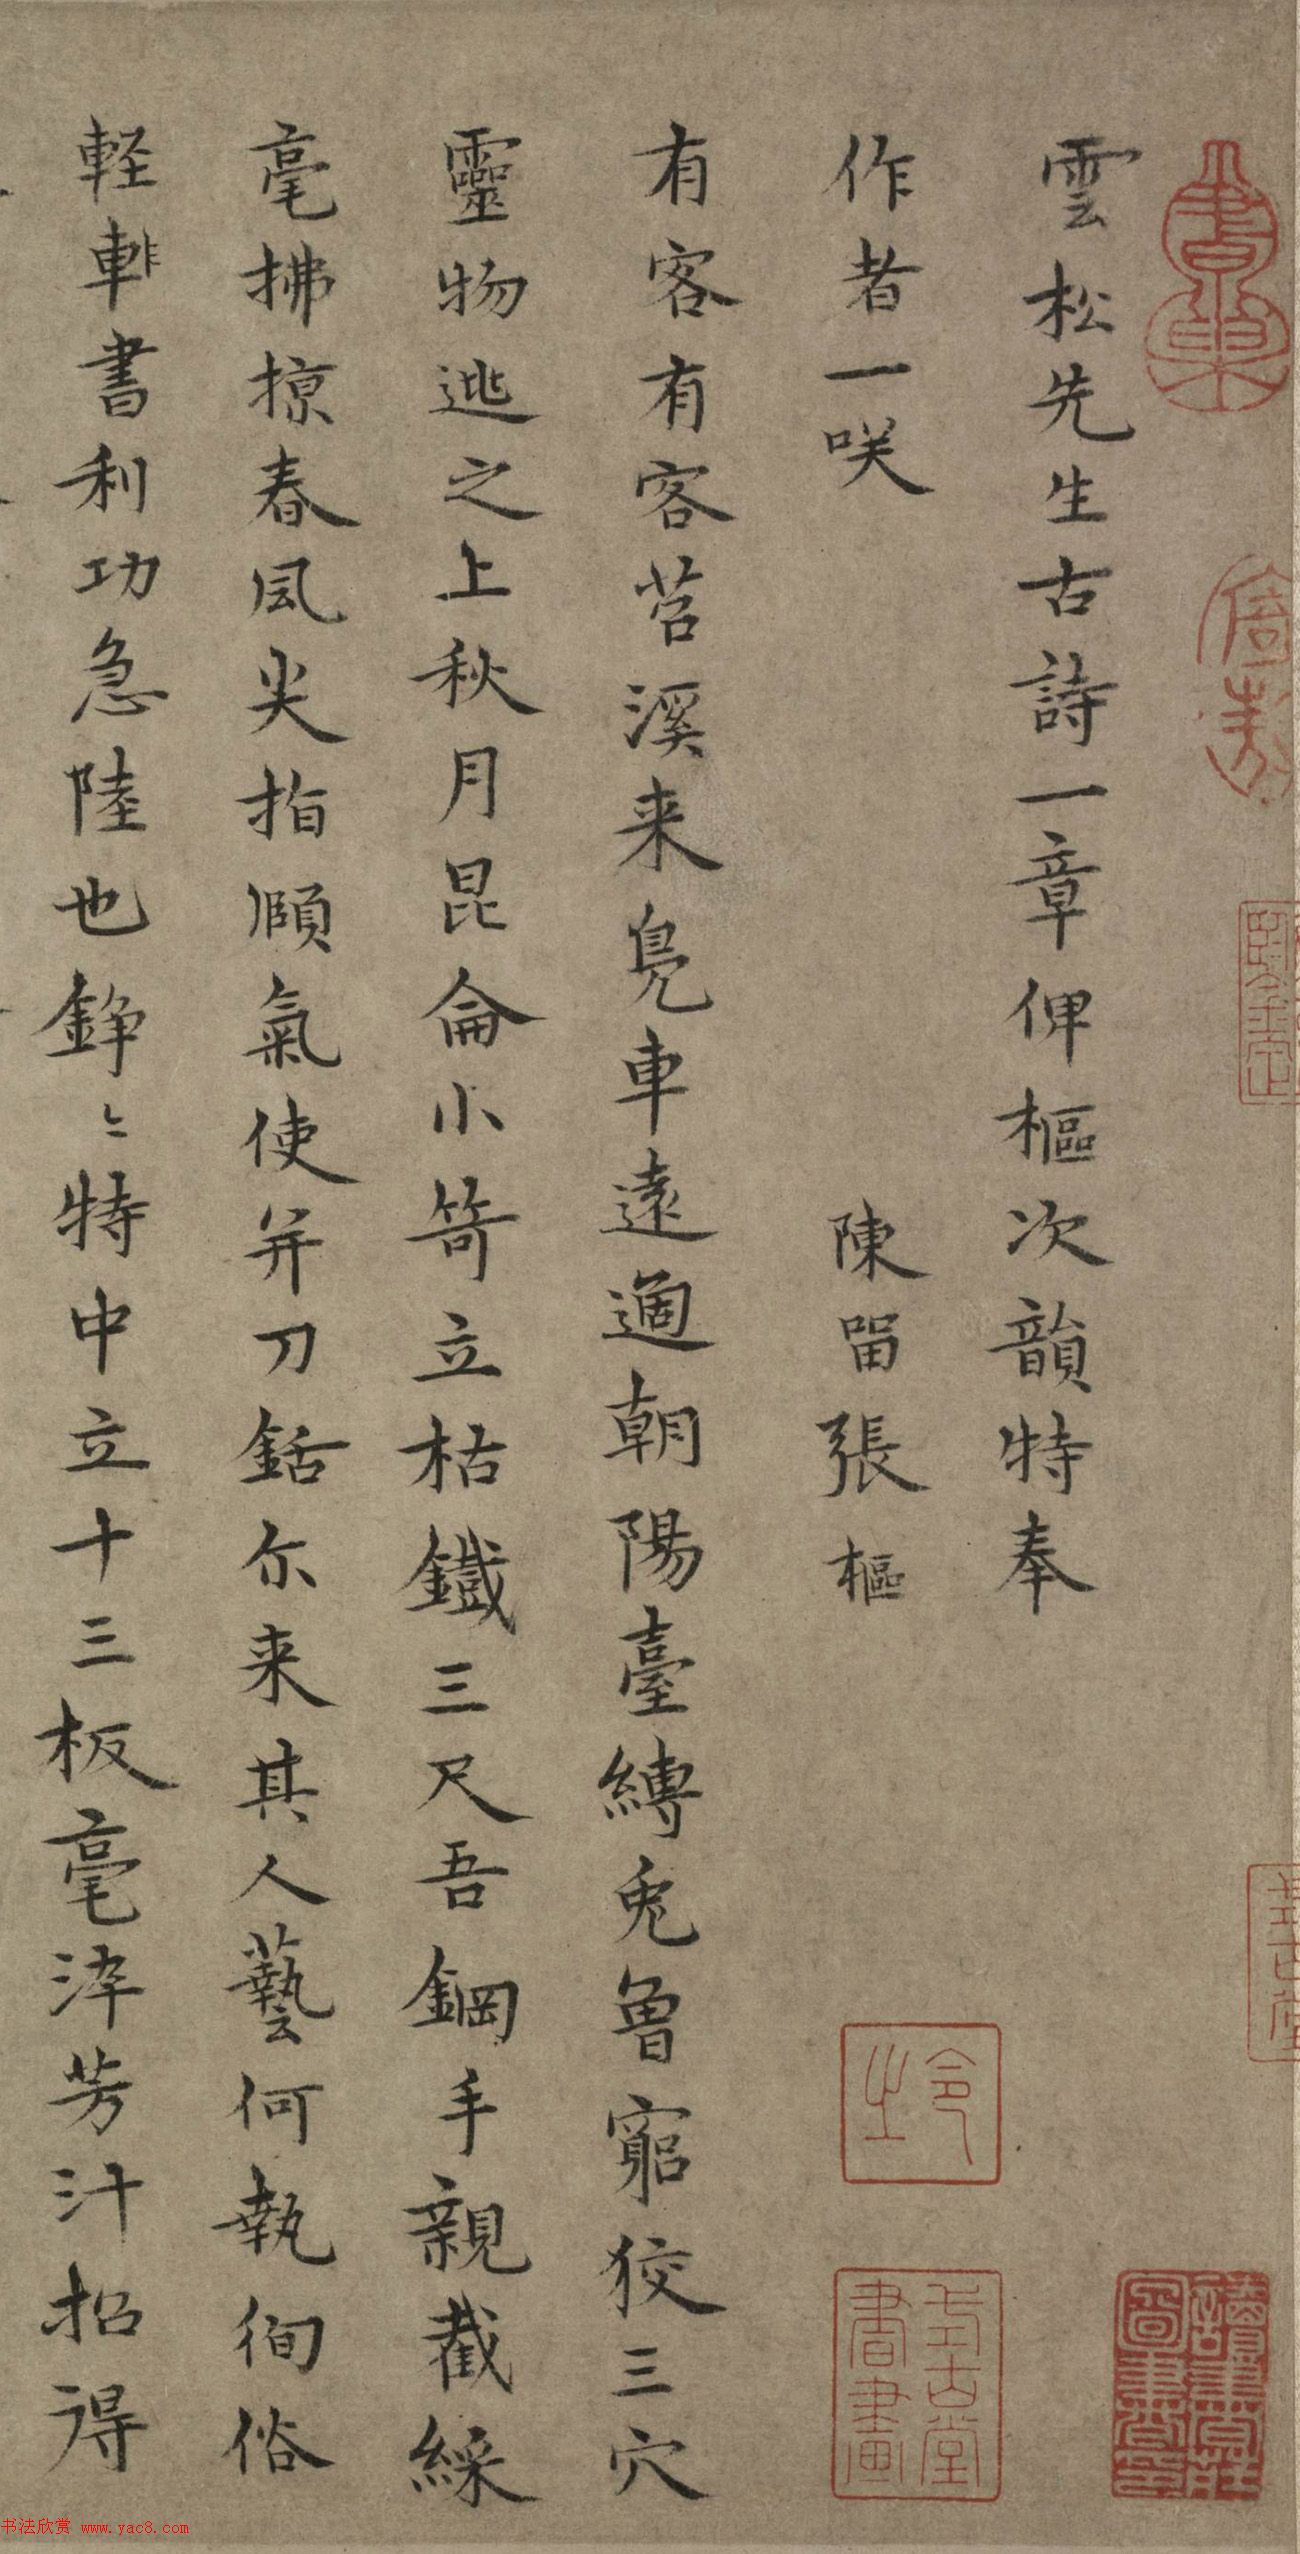 雲松先生古詩一章俾樞次韻特奉
作者一咲
陳留張樞
有客有客苕溪来鳬車遠適朝陽臺縛兎魯窮狡三穴
靈物逃之上秋月昆侖小箭立枯鐵三尺吾鋼手親截綵
毫拂掠春風尖指頋氣使并刀銛尒来其人藝何執徇俗
軽車非書利功急陸也錚〻特中立十三板毫淬芳汁招得
令之
式古堂書畫
书法欣赏 www.yac8.com